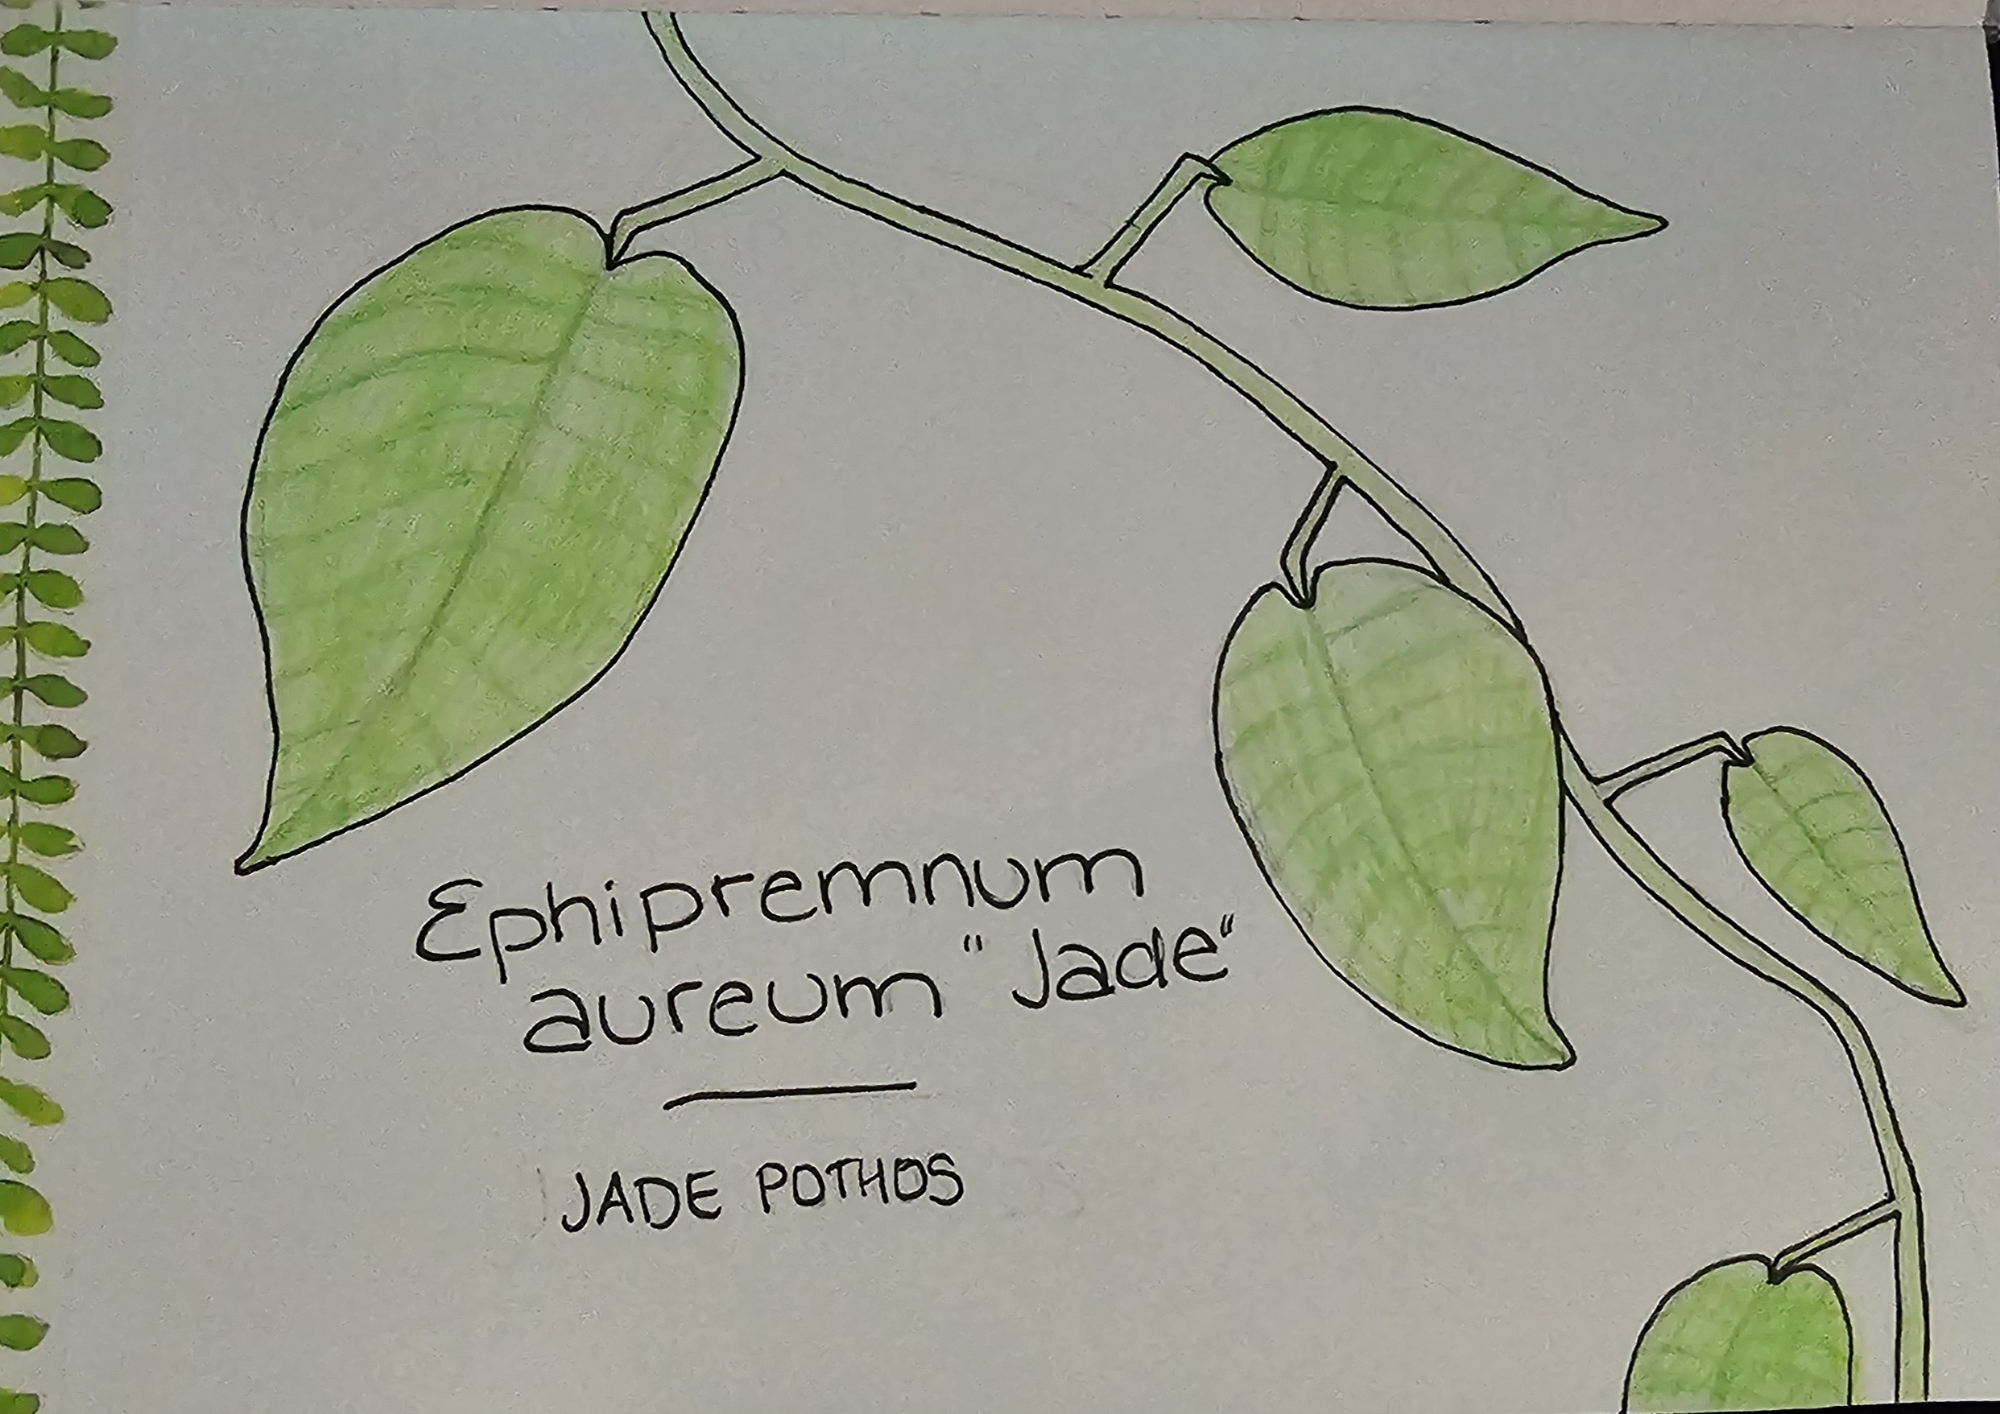 Ephipremnum
aureum "Jade"
JADE POTHOS